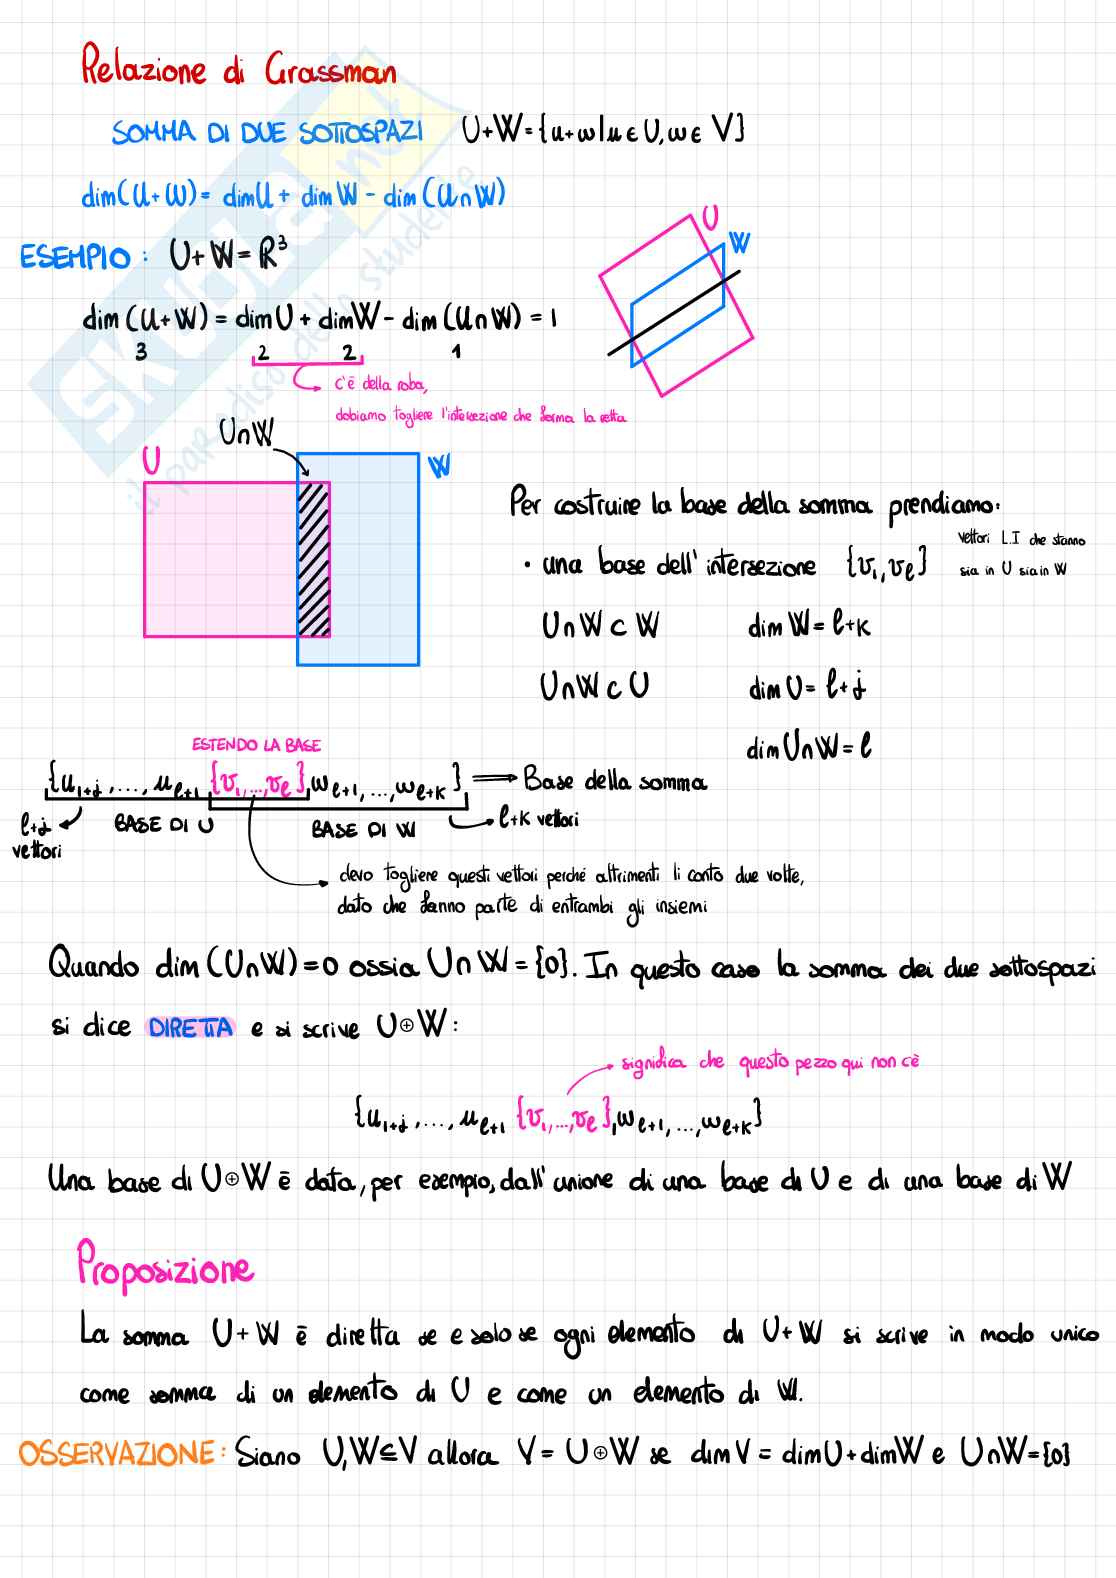 Relazione di Grassman
SOMMA DI DUE SOTTOSPAZI U+W={u+w|u∈U,w∈V}
dim(U+W)= dimU+ dimW- dim(U∩W)
ESEMPIO: U+W=R³
dim(U+W)=dimU+dimW-dim(U∩W)=1
3 2 2 1
c'è della roba,
dobiamo togliere l'intersezione che forma la retta
U
W
U∩W
U
W
Per costruire la base della somma prendiamo:
• una base dell'intersezione {v₁,vℓ} vettori L.I che stanno
sia in U sia in W
U∩W⊂W dimW=ℓ+k
U∩W⊂U dimU=ℓ+j
dimU∩W=ℓ
ESTENDO LA BASE
{u₁₊j,...,uℓ₊₁{v₁,...,vℓ},wℓ₊₁,...,wℓ₊k} ⟹ Base della somma
ℓ+j
vettori
BASE DI U BASE DI W ℓ+k vettori
devo togliere questi vettori perché altrimenti li conto due volte,
dato che fanno parte di entrambi gli insiemi
Quando dim(U∩W)=0 ossia U∩W={0}. In questo caso la somma dei due sottospazi
si dice DIRETTA e si scrive U⊕W:
significa che questo pezzo qui non c'è
{u₁₊j,...,uℓ₊₁{v₁,...,vℓ},wℓ₊₁,...,wℓ₊k}
Una base di U⊕W è data, per esempio, dall'unione di una base di U e di una base di W
Proposizione
La somma U+W è diretta se e solo se ogni elemento di U+W si scrive in modo unico
come somma di un elemento di U e come un elemento di W.
OSSERVAZIONE: Siano U,W⊆V allora V=U⊕W se dimV=dimU+dimW e U∩W={0}
SKUOLA.net
il paradiso dello studente